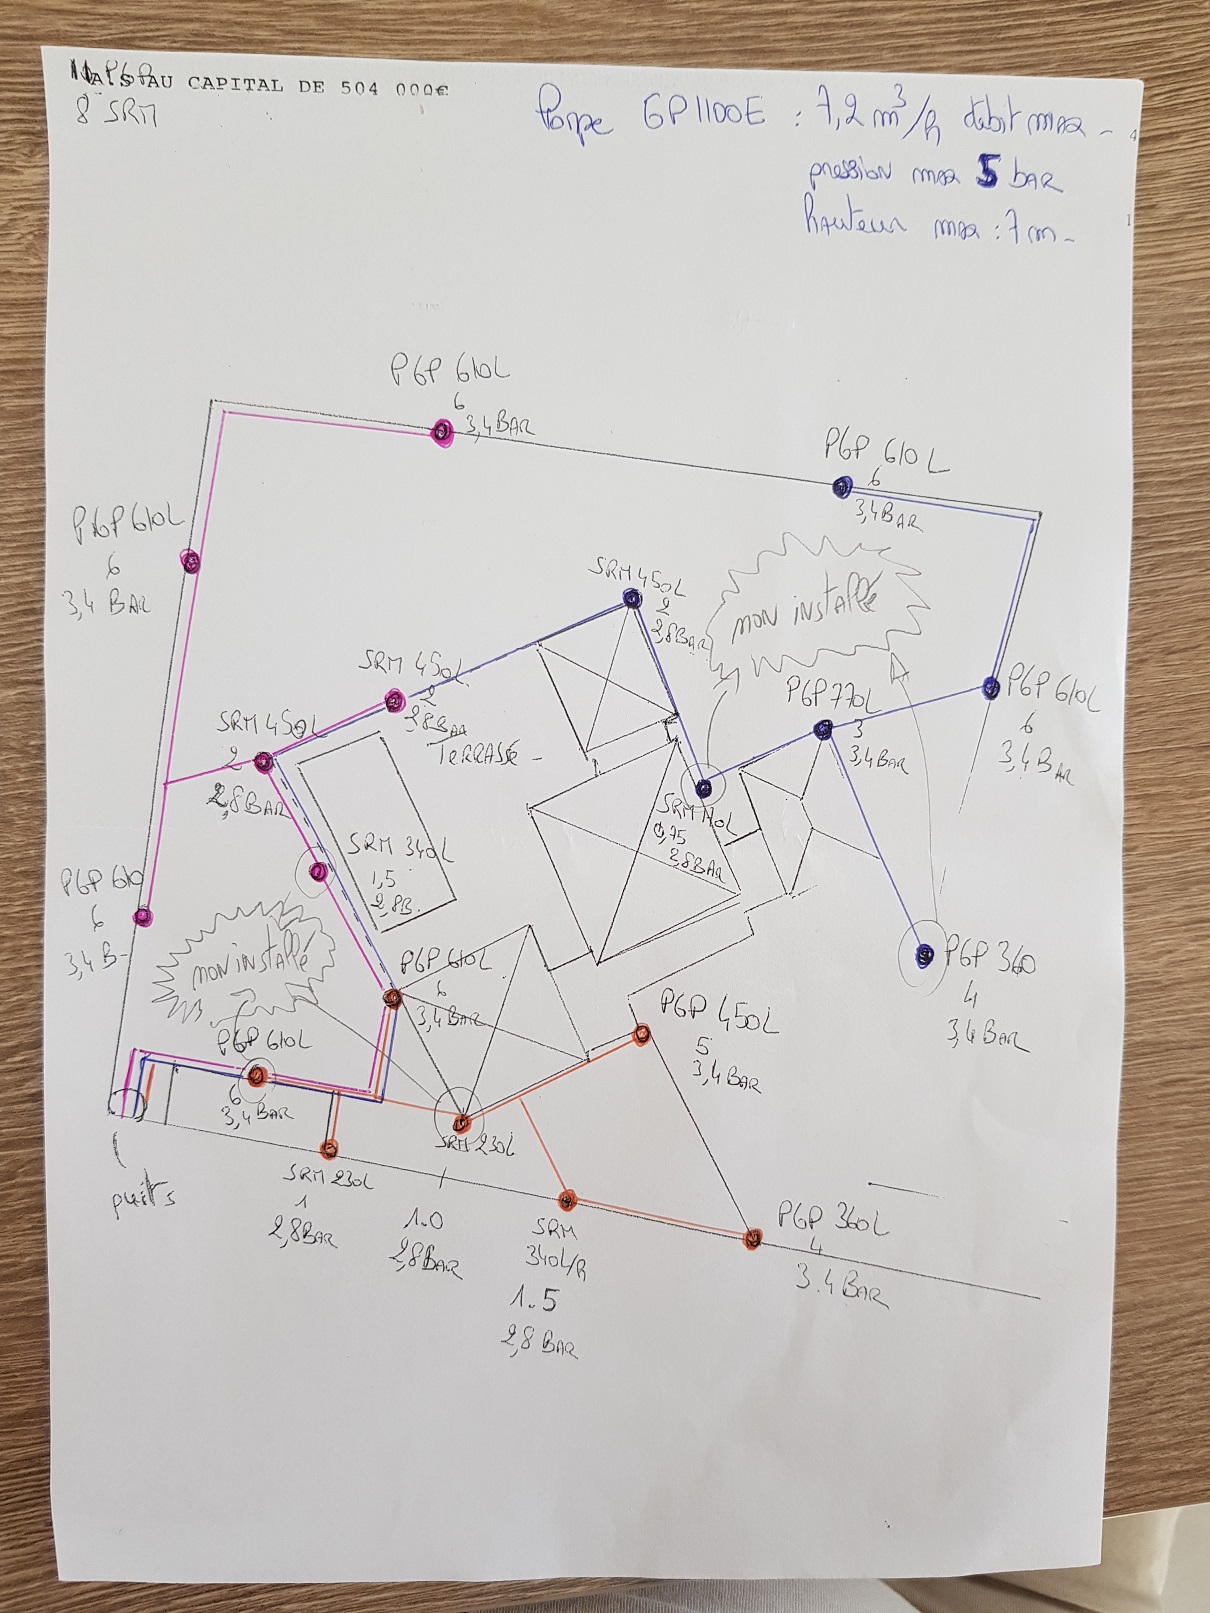 SAPSAU CAPITAL DE 504 000€
8 SRM
Pompe GP1100E : 7,2 m³/h débit max -
pression max 5 BAR
hauteur max : 7 m -
PGP 610L
6
3,4 BAR
PGP 610 L
6
3,4 BAR
PGP 610L
6
3,4 BAR
SRM 450L
2
2,8 BAR
non installé
SRM 450L
2
2,8 BAR
PGP 770L
3
3,4 BAR
PGP 610L
6
3,4 BAR
SRM 450L
2
2,8 BAR
TERRASSE -
SRM 110L
0,75
2,8 BAR
SRM 340L
1,5
2,8 B.
PGP 610
6
3,4 B-
non installé
PGP 610L
6
3,4 BAR
PGP 360
4
3,4 BAR
PGP 450L
5
3,4 BAR
PGP 610L
6
3,4 BAR
SRM 230L
puits
SRM 230L
1
2,8 BAR
1.0
2,8 BAR
SRM
340L/h
1.5
2,8 BAR
PGP 360L
4
3.4 BAR